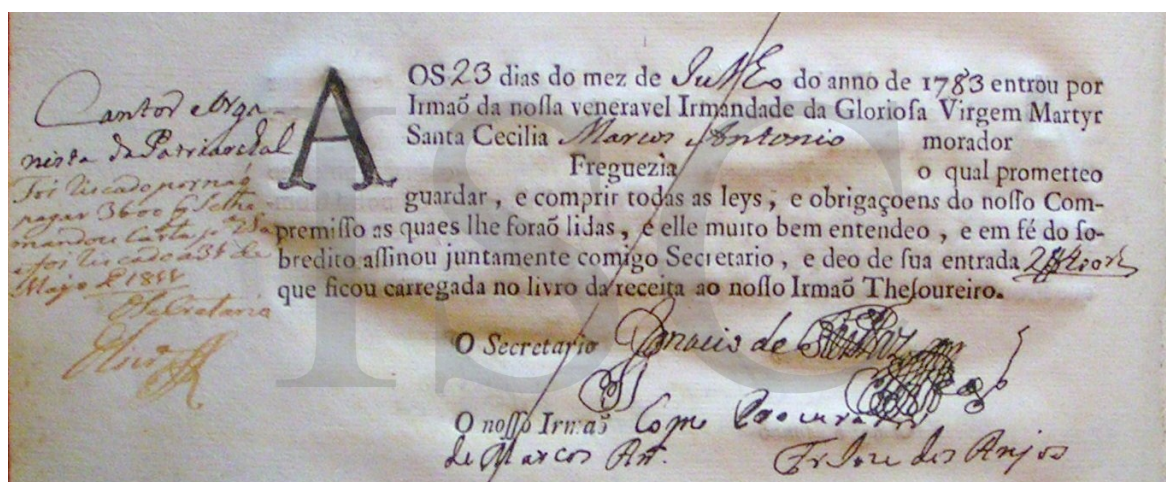 Cantor e Orga-
nista da Patriarchal
Foi riscado por não
pagar 3600
mandou carta
e foi riscado a 31 de
Mayo
O Secretario
AOS 23 dias do mez de Julho do anno de 1783 entrou por
Irmaõ da noſſa veneravel Irmandade da Glorioſa Virgem Martyr
Santa Cecilia Marcos Antonio morador
Freguezia o qual prometteo
guardar , e comprir todas as leys , e obrigaçoens do noſſo Com-
premiſſo as quaes lhe foraõ lidas , e elle muito bem entendeo , e em fé do ſo-
bredito aſſinou juntamente comigo Secretario , e deo de ſua entrada
que ficou carregada no livro da receita ao noſſo Irmaõ Theſoureiro.
O Secretario Ignacio de
O noſſo Irmaõ Como Procurador
de Marcos An.
Fr Jose dos Anjos
ISC